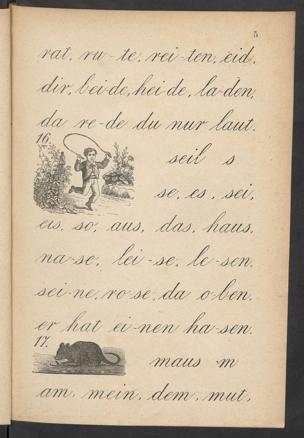 5
rat, ru-te, rei-ten, eid,
dir, bei-de, hei-de, la-den,
da re-de du nur laut.
16.
seil s
se, es, sei,
eis, so, aus, das, haus,
na-se, lei-se, le-sen,
sei-ne, ro-se, da o-ben.
er hat ei-nen ha-sen.
17.
maus m
am, mein, dem, mut,